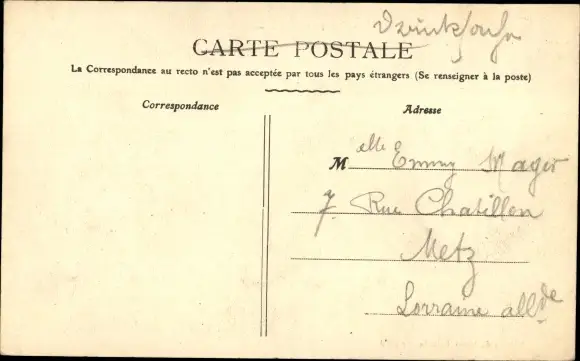 CARTE POSTALE
La Correspondance au recto n'est pas acceptée par tous les pays étrangers (Se renseigner à la poste)
Correspondance
Adresse
Melle Emmy Mager
7 Rue Chatillon
Metz
Lorraine allde